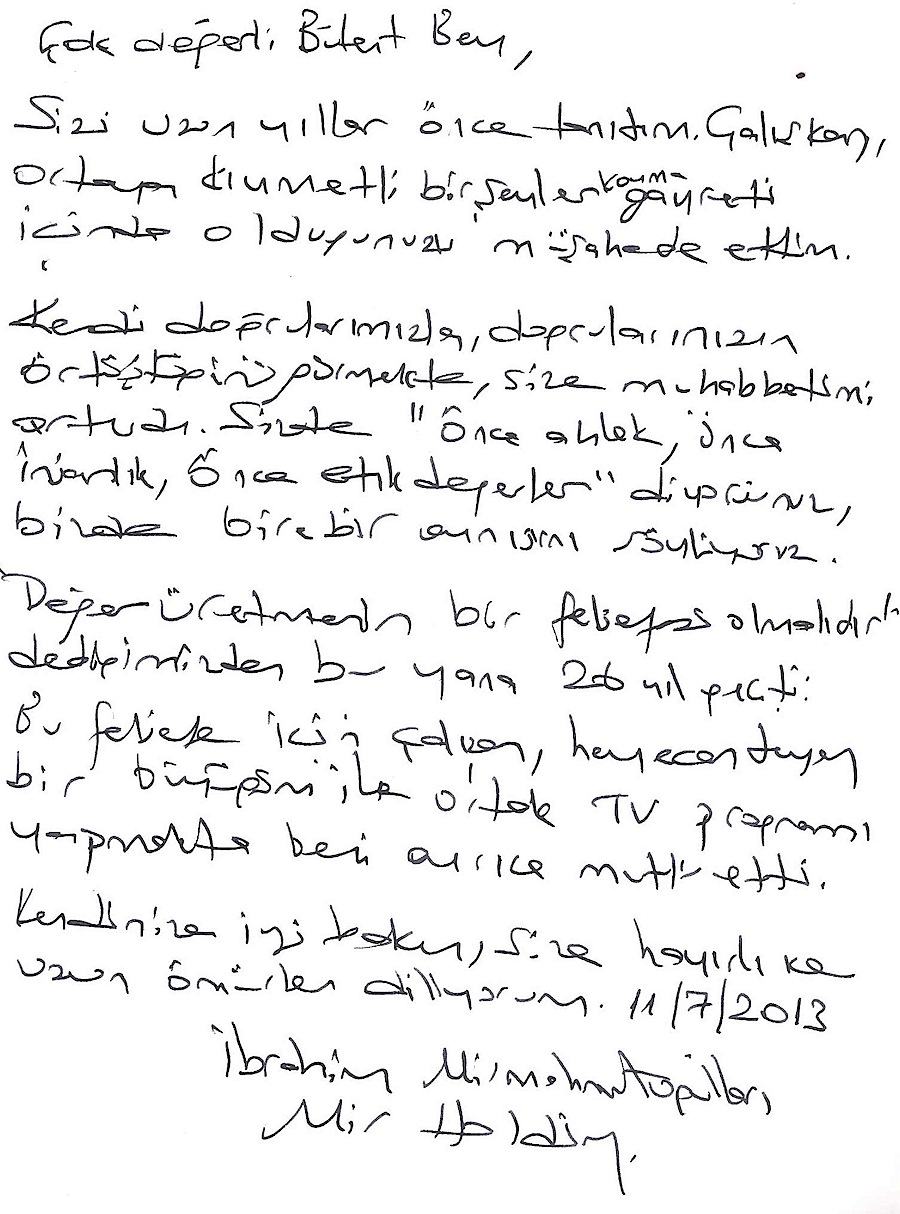 Çok değerli Bülent Bey,
Sizi uzun yıllar önce tanıdım. Çalışkan,
ortaya kıymetli bir şeyler koyma gayreti
içinde olduğunuzu müşahede ettim.
Kendi doğrularımızla, doğrularınızın
örtüştüğünü görmekte, size muhabbetimi
artırdı. Sizde "Önce ahlak, önce
İnsanlık, Önce etik değerler" diyorsunuz,
bizde birebir aynısını söylüyoruz.
Değer üretmenin bir felsefesi olmalıdır
dediğimizden bu yana 26 yıl geçti.
Bu felsefe için çalışan, heyecan duyan
bir büyüğüm ile ortak TV programı
yapmakta beni ayrıca mutlu etti.
Kendinize iyi bakın, size hayırlı ve
uzun ömürler diliyorum. 11/7/2013
İbrahim Mirmahmutoğulları
Mir Holding